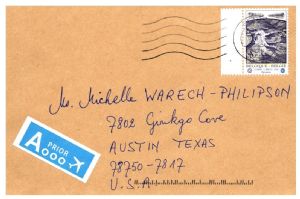 BELGIQUE - BELGIË
Ms. Michelle WARECH-PHILIPSON
7802 Ginkgo Cove
AUSTIN TEXAS
78750-7817
U.S.A
A PRIOR